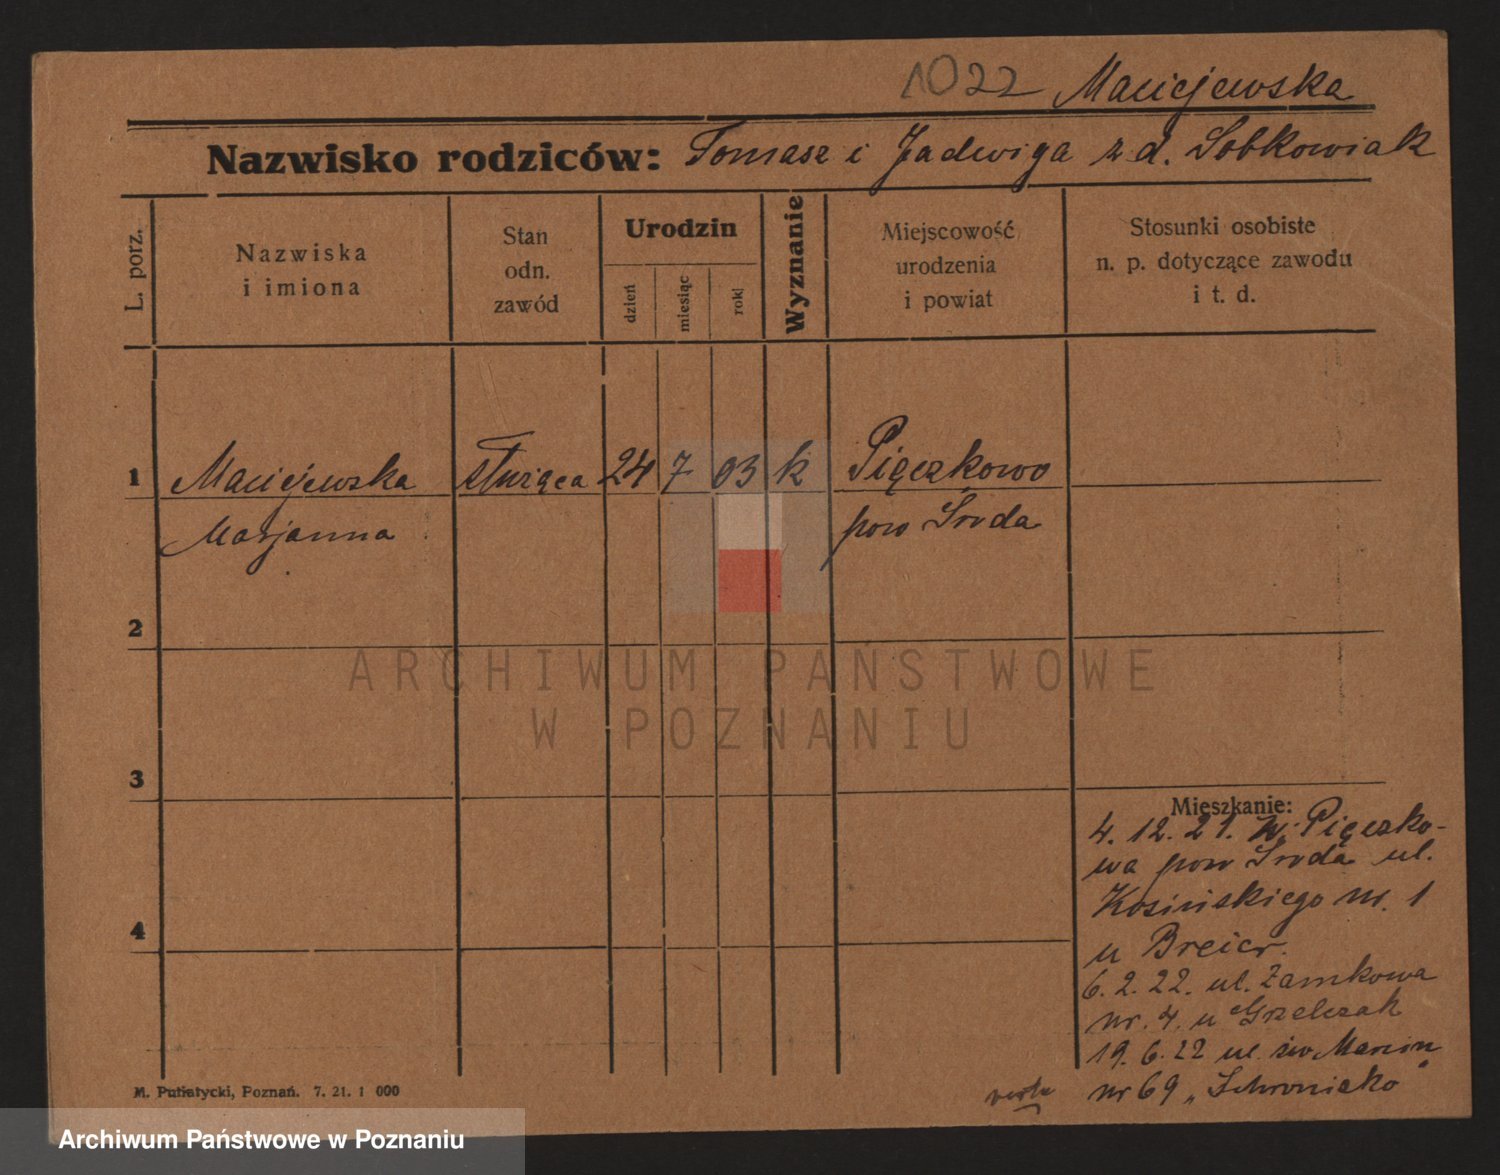 1022 Maciejewska
Nazwisko rodziców: Tomasz i Jadwiga z d. Sobkowiak
L. porz.
Nazwiska
i imiona
Stan
odn.
zawód
Urodzin
dzień
miesiąc
rok
Wyznanie
Miejscowość
urodzenia
i powiat
Stosunki osobiste
n. p. dotyczące zawodu
i t. d.
1 Maciejewska służąca 24 7 03 k Pięczkowo
Marjanna pow Środa
2
ARCHIWUM PAŃSTWOWE
W POZNANIU
3
Mieszkanie:
4. 12. 21. z Pięczko-
wa pow Środa ul.
Kosińskiego nr. 1
4
u Breier.
6. 2. 22. ul. Zamkowa
nr. 7. u Grzelczak
19. 6. 22 ul. św Marcin
nr 69 „Schronisko"
verte
M. Putiatycki, Poznań. 7. 21. 1 000
Archiwum Państwowe w Poznaniu